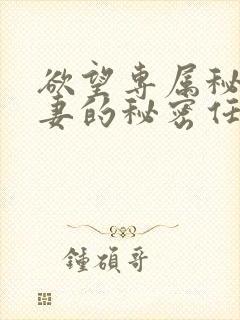 欲望专属秘
妻的秘密任
鍾碩哥